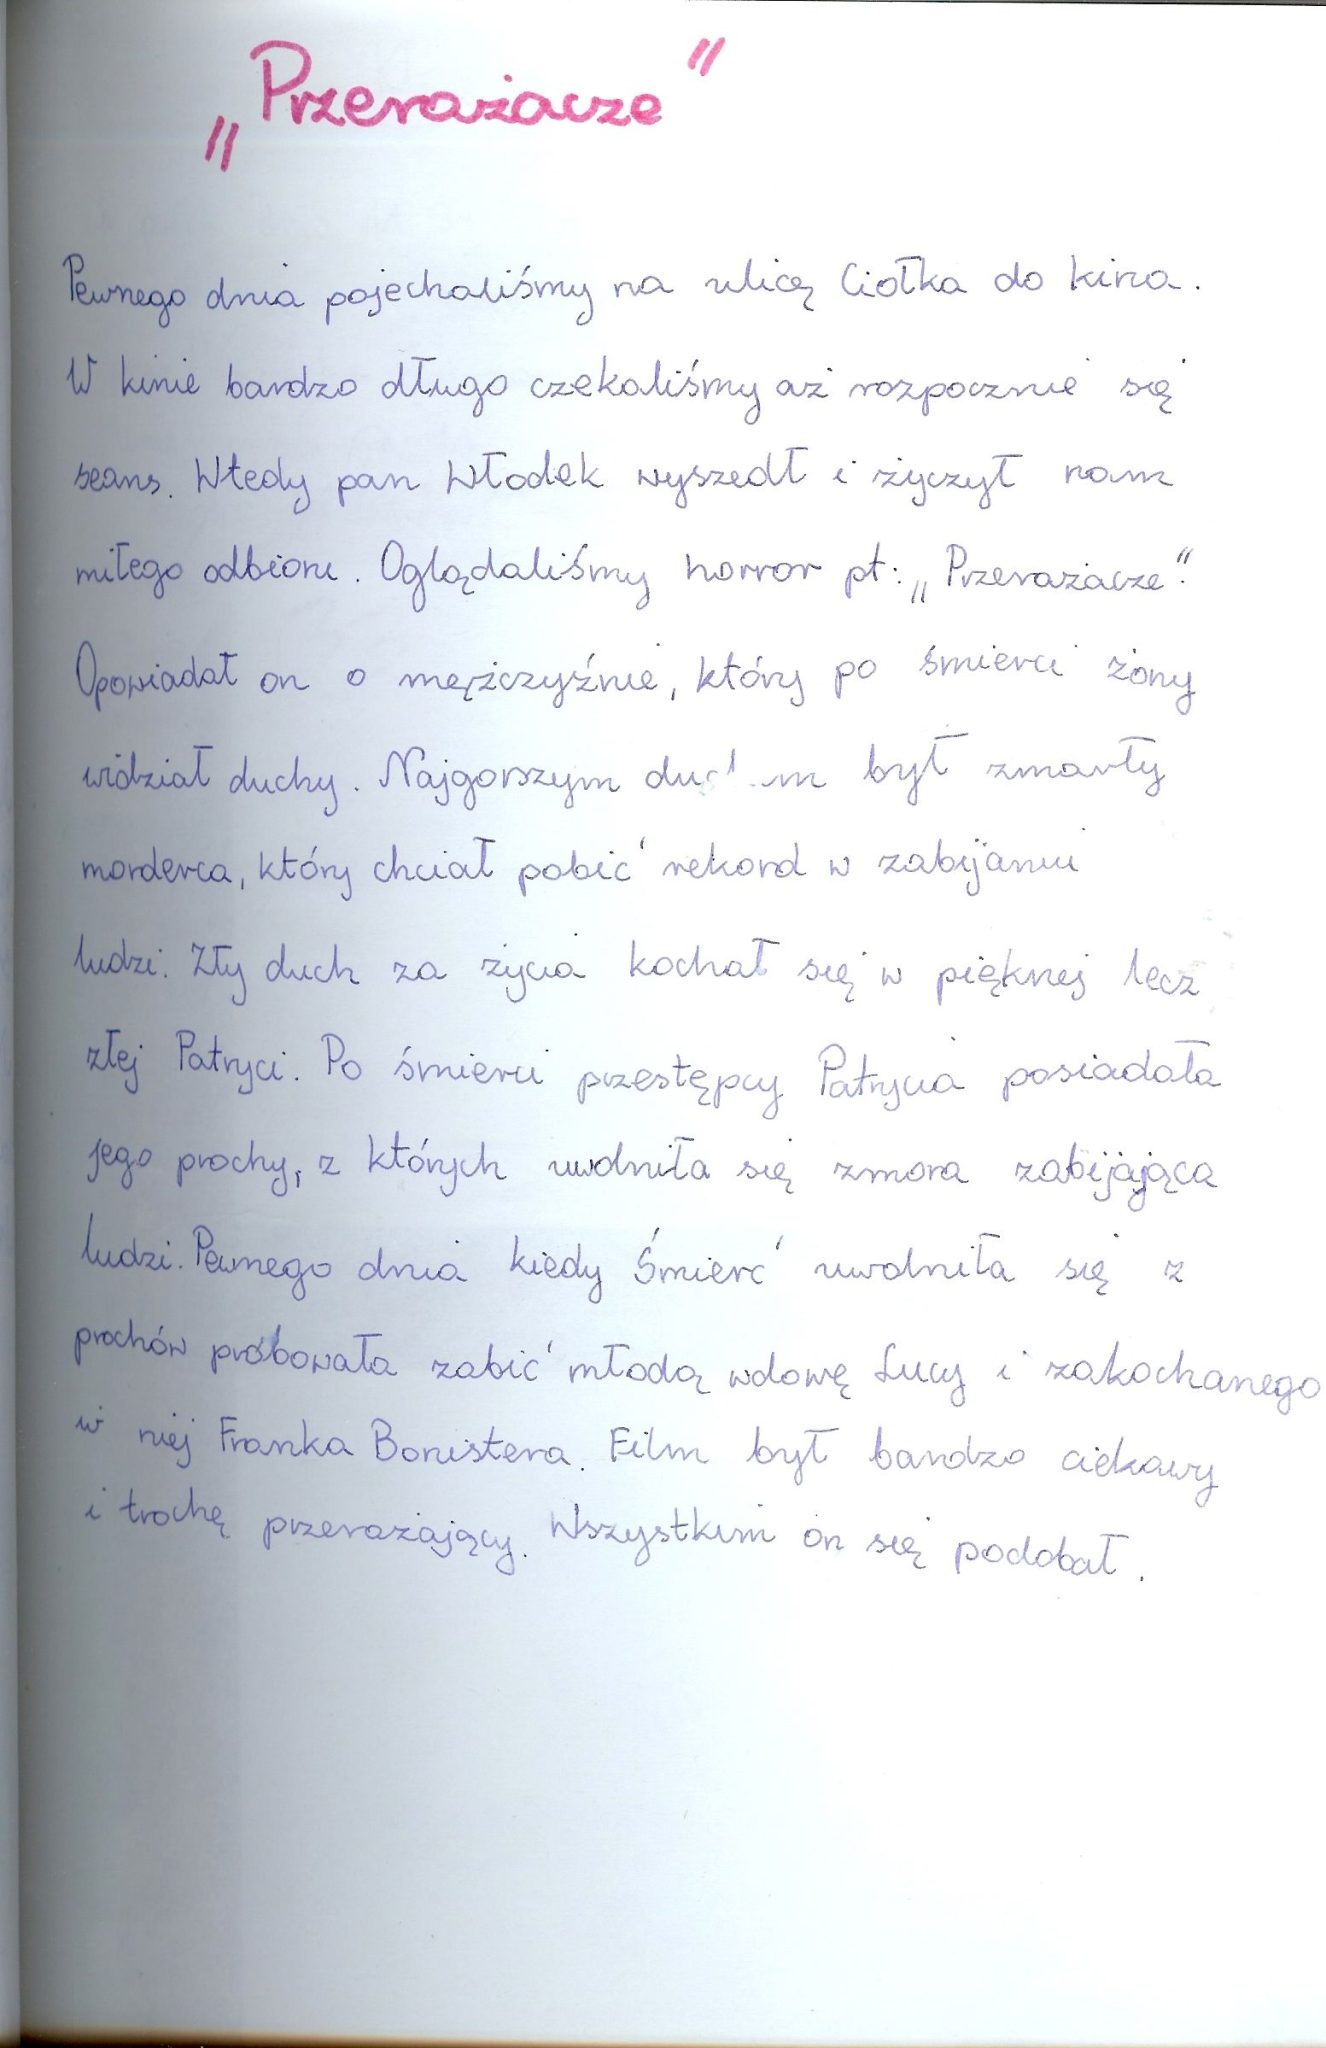 „Przerażacze”
Pewnego dnia pojechaliśmy na ulicę Ciołka do kina.
W kinie bardzo długo czekaliśmy aż rozpocznie się
seans. Wtedy pan Włodek wyszedł i życzył nam
miłego odbioru. Oglądaliśmy horror pt: „Przerażacze”.
Opowiadał on o mężczyźnie, który po śmierci żony
widział duchy. Najgorszym był zmarły
morderca, który chciał pobić rekord w zabijaniu
ludzi. Zły duch za życia kochał się w pięknej lecz
złej Patrycji. Po śmierci przestępcy Patrycia posiadała
jego prochy, z których uwolniła się zmora zabijająca
ludzi. Pewnego dnia kiedy Śmierć uwolniła się z
prochów próbowała zabić młodą wdowę Lucy i zakochanego
w niej Franka Bonistera. Film był bardzo ciekawy
i trochę przerażający. Wszystkim on się podobał.